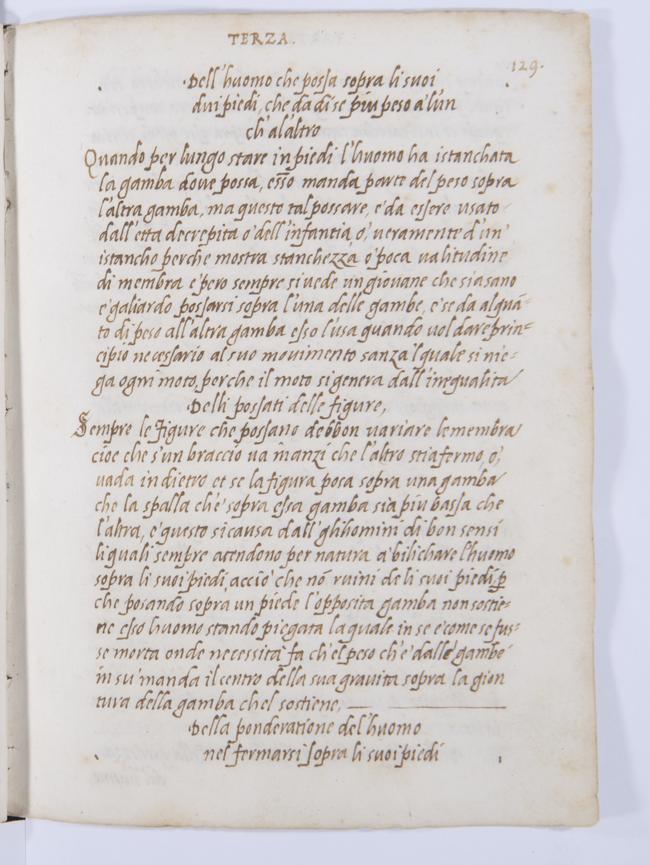 TERZA.
129.
Dell'huomo che possa sopra li suoi
dui piedi, che da di se piu peso a l'un
ch' al altro
Quando per lungo stare in piedi l'huomo ha istanchata
la gamba dove possa, esso manda parte del peso sopra
l'altra gamba, ma questo tal possare, e da essere usato
dall'etta decrepita o dell'infantia, o, veramente d'un'
istancho perche mostra stanchezza, o poca valitudine
di membra e pero sempre si vede un giovane che sia sano
e galiardo possarsi sopra l'una delle gambe, e se da alquã=
to di peso all'altra gamba esso l'usa quando vol dare prin=
cipio necessario al suo movimento sanza 'l quale si nie=
ga ogni moto, perche il moto si genera dall'inequalita
Delli possati delle figure,
Sempre le figure che possano debbon variare le membra
cioe che s'un braccio va inanzi che l'altro stia fermo, o,
vada in dietro et se la figura posa sopra una gamba
che la spalla ch'e sopra essa gamba sia piu bassa che
l'altra, e questo si causa dall' ghihomini di bon sensi
li quali sempre atendono per natura a bilichare l'huomo
sopra li suoi piedi, accio che nõ ruini de li suoi piedi, p
che posando sopra un piede l'opposita gamba non sostie=
ne esso huomo stando piegata la quale in se e come se fus=
se morta onde necessita fa ch'el peso ch'e dalle gambe
in su manda il centro della sua gravita sopra la gion
tura della gamba chel sostiene,
Della ponderatione del'huomo
nel fermarsi sopra li suoi piedi